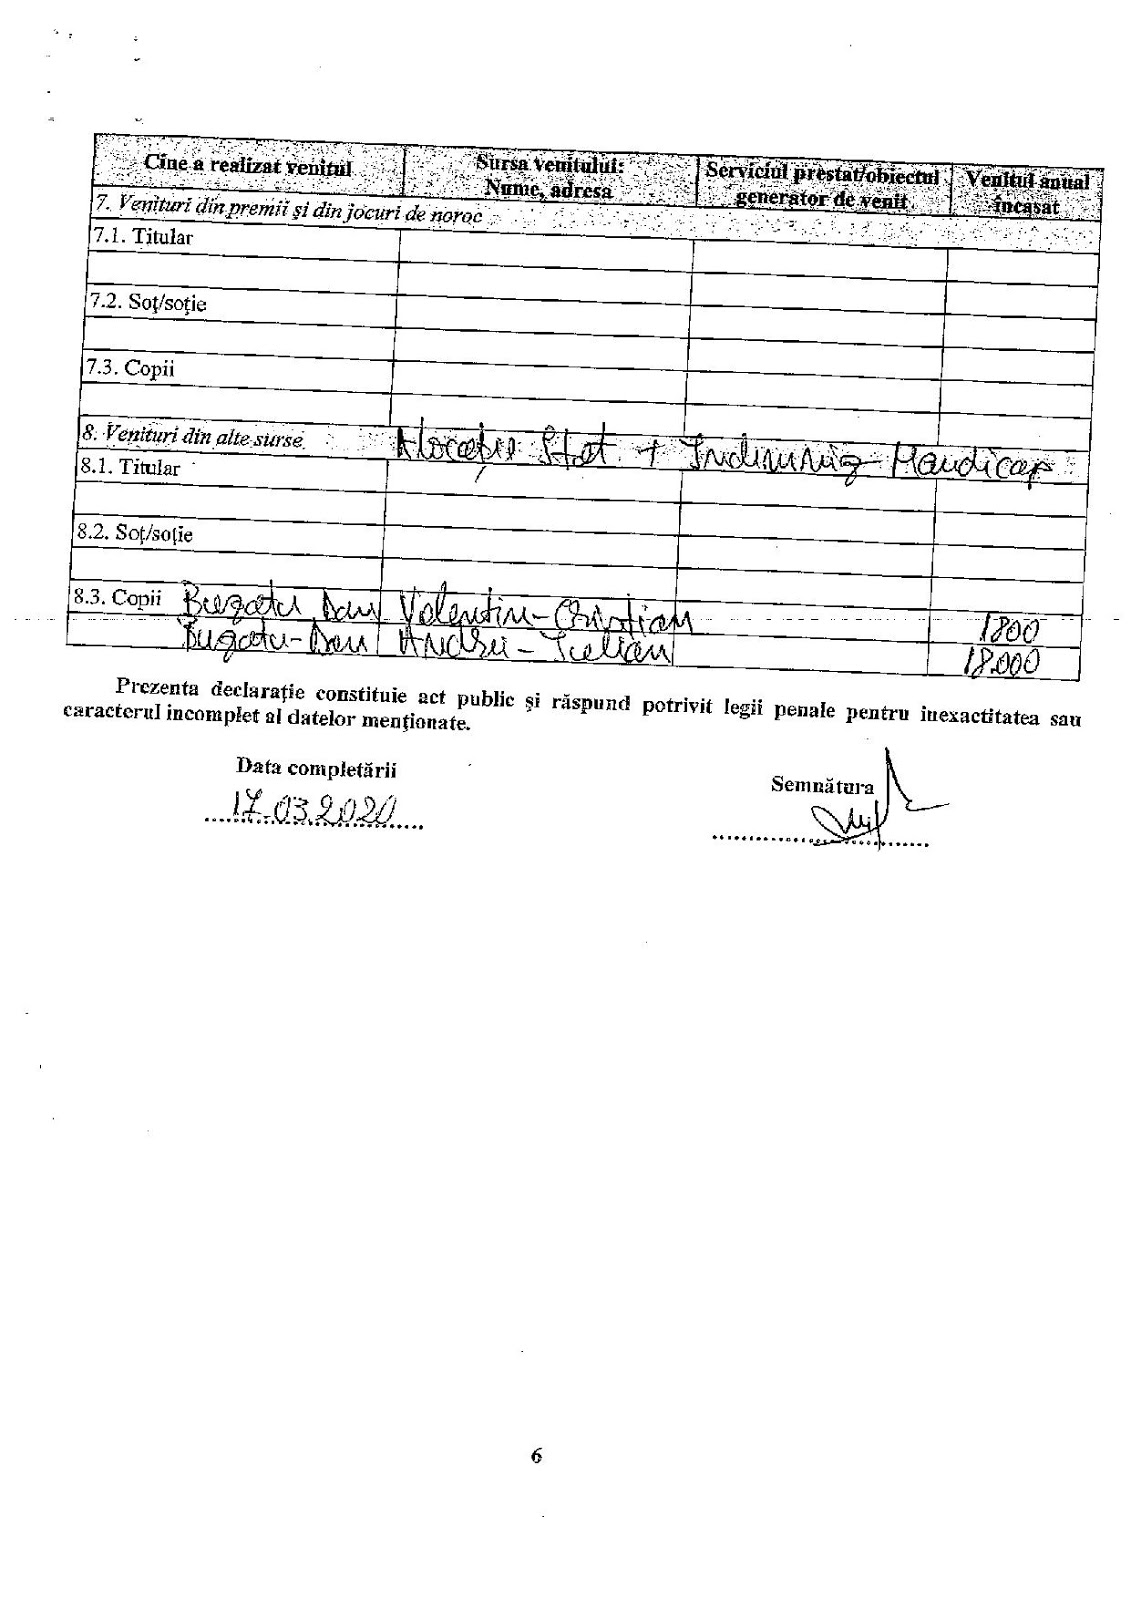 Cine a realizat venitul | Sursa venitului: Nume, adresa | Serviciul prestat/obiectul generator de venit | Venitul anual încasat
7. Venituri din premii și din jocuri de noroc
7.1. Titular
7.2. Soț/soție
7.3. Copii
8. Venituri din alte surse Alocație Stat + Indemniz Handicap
8.1. Titular
8.2. Soț/soție
8.3. Copii Bugatu Dan Valentin-Cristian 1800
Bugatu-Dan Andrei-Iulian 18.000
Prezenta declarație constituie act public și răspund potrivit legii penale pentru inexactitatea sau
caracterul incomplet al datelor menționate.
Data completării
Semnătura
17.03.2020
6